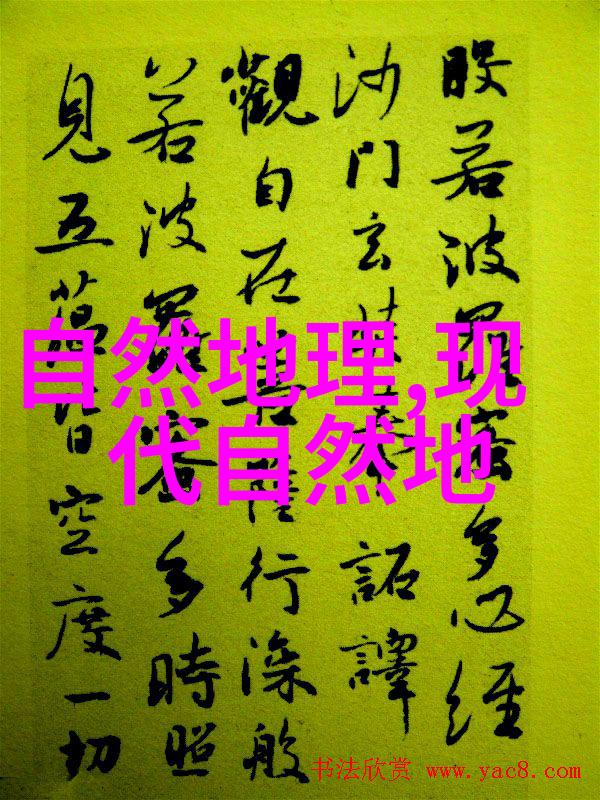 般若波羅蜜多心經
沙門玄奘奉詔譯
觀自在菩薩行深般
若波羅蜜多時照
見五蘊皆空度一切
自然地理,现
代自然地
书法欣赏 www.yac8.com